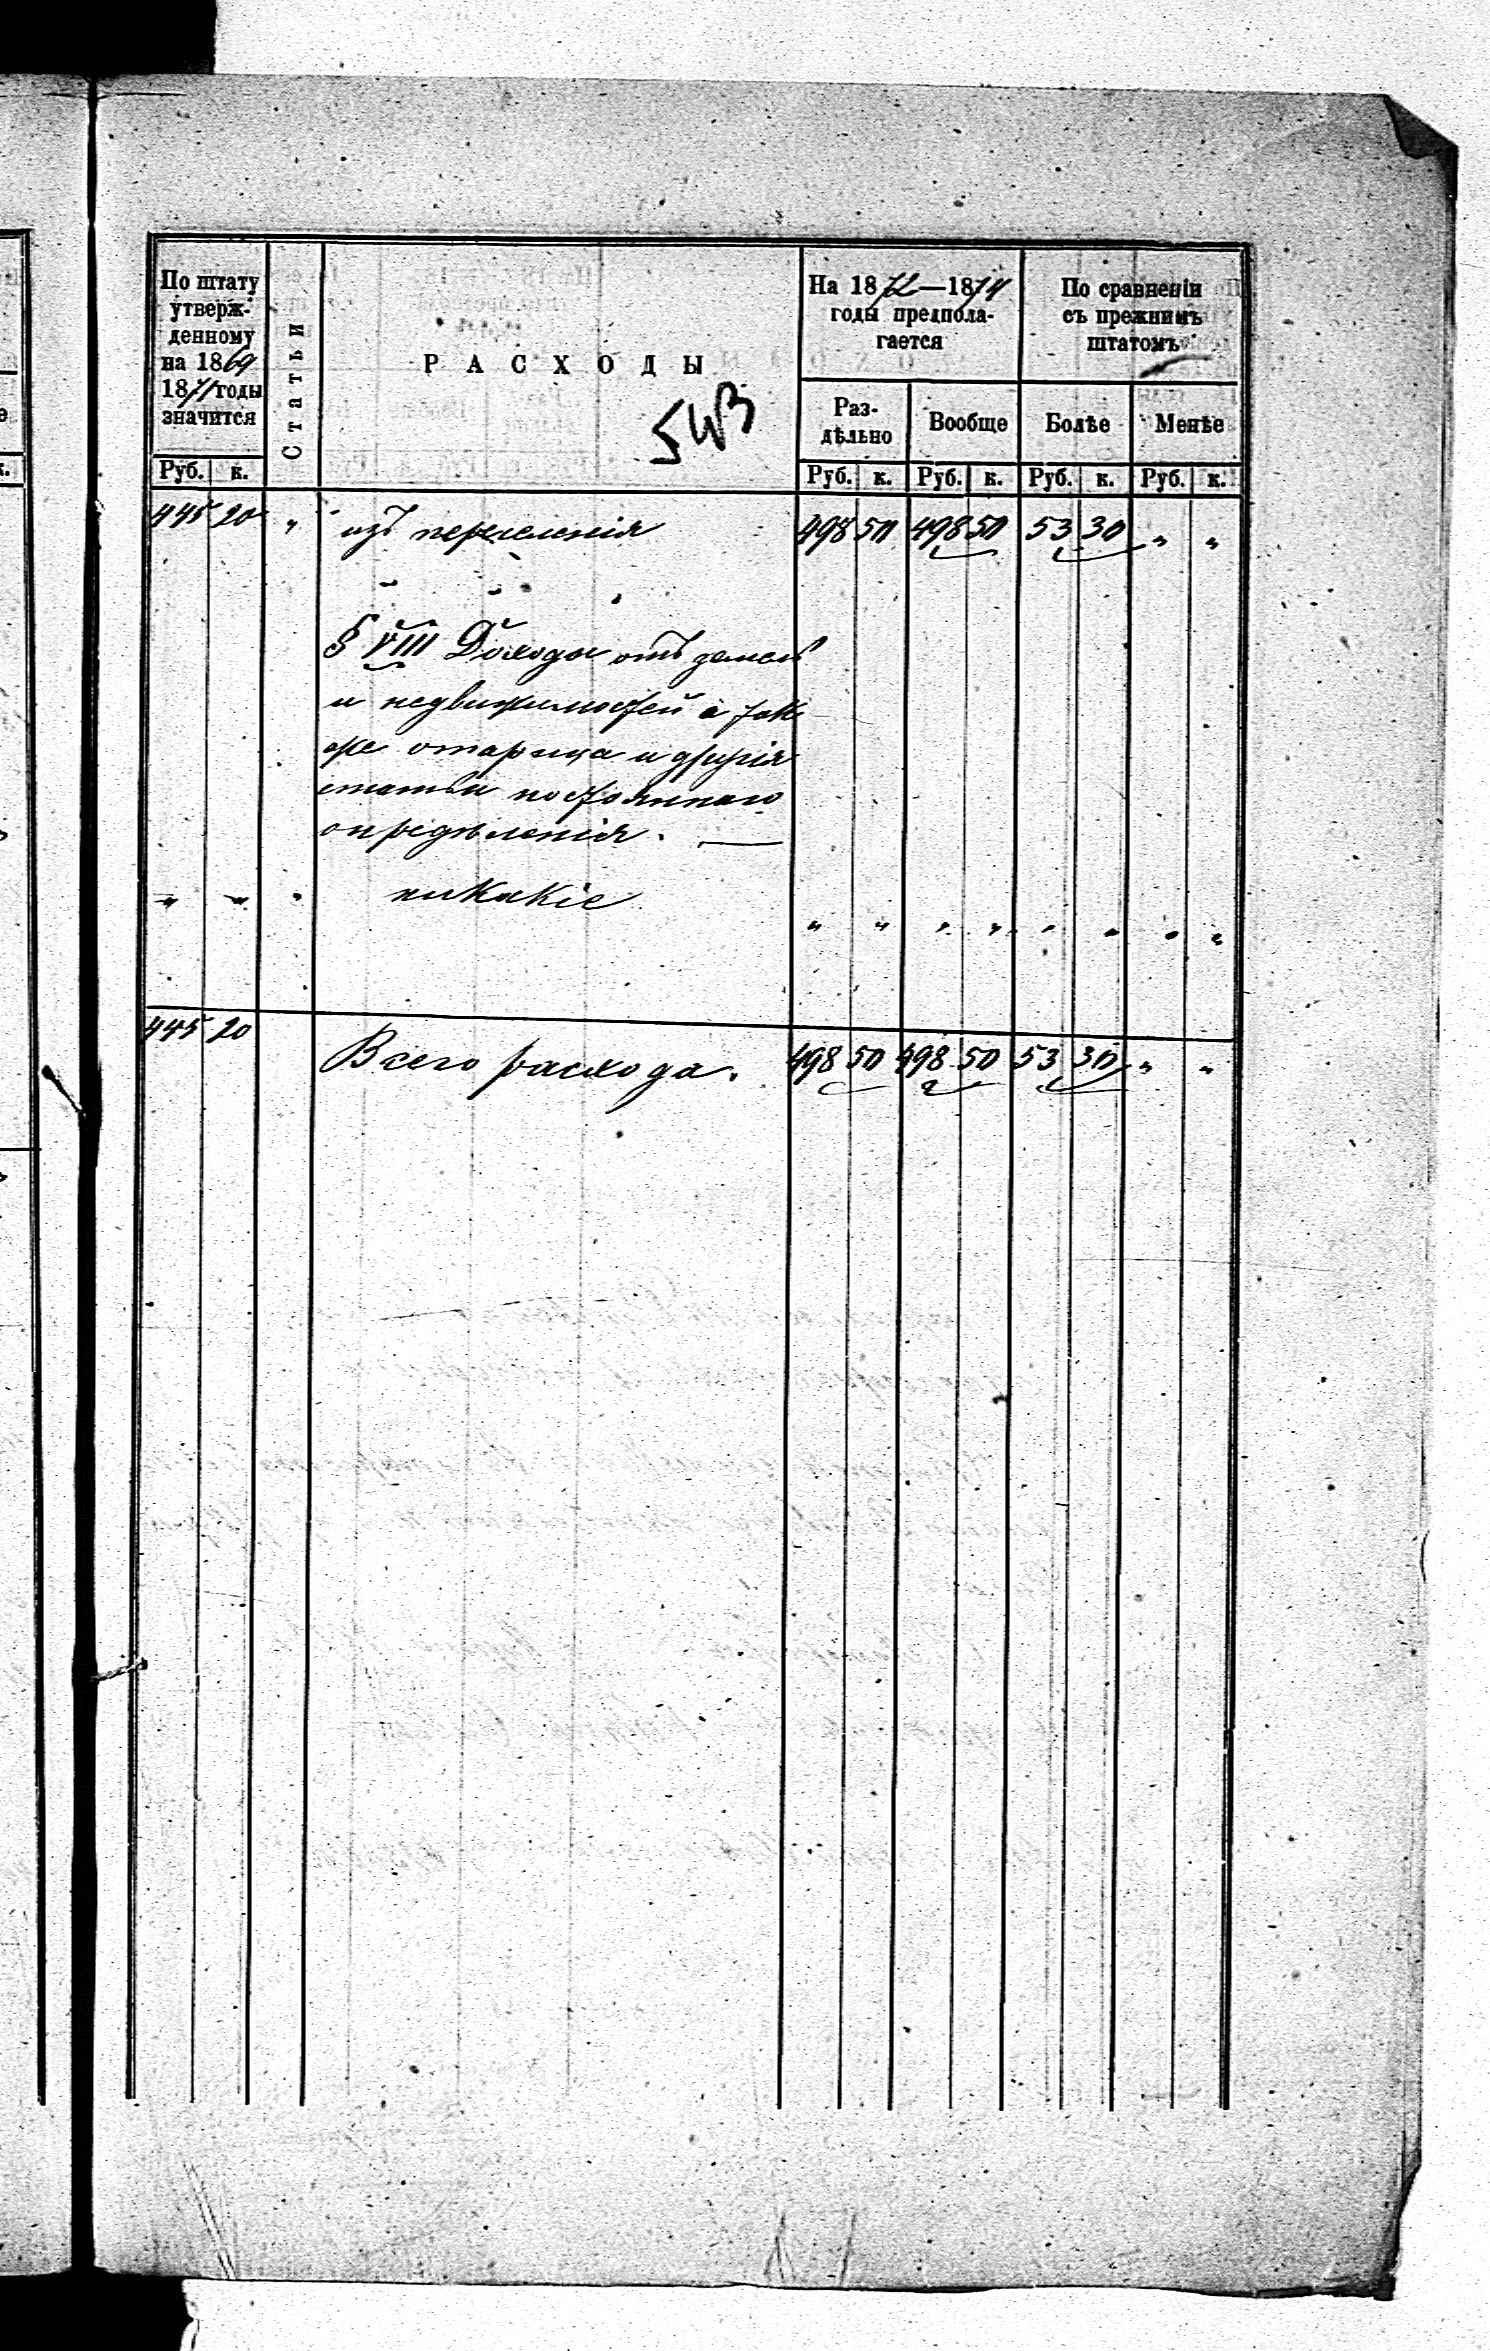 По штату
утверж-
денному
на 1869
1871 годы
значится
Статьи
РАСХОДЫ
543
На 1872—1874
годы предпола-
гается
По сравненіи
съ прежнимъ
штатомъ
Раз-
дѣльно
Вообще
Болѣе
Менѣе
Руб. к. Руб. к. Руб. к. Руб. к. Руб. к.
445 20 „ изъ 498 50 498 50 53 30 „ „
§ VIII Доходы отъ земель
и недвижимостей а так
же и другія
статьи постояннаго
опредѣленія. —
„ „ „ никакіе „ „ „ „ „ „ „ „
445 20 Всего расхода. 498 50 498 50 53 30 „ „